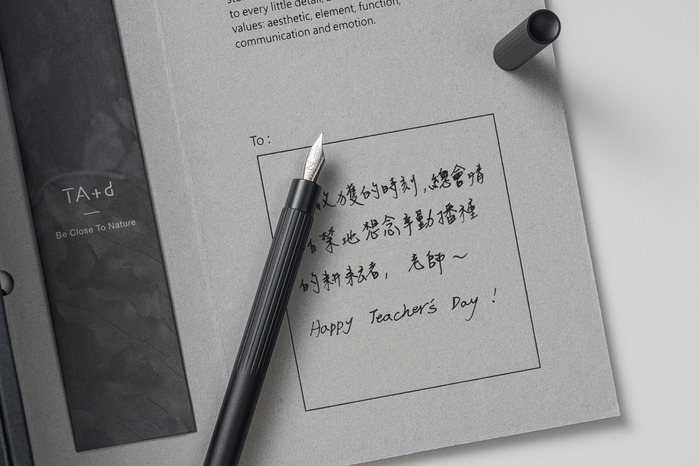 to every little detail,
values: aesthetic, element, function,
communication and emotion.
TA+d
Be Close To Nature
To :
收獲的時刻,總會情
自禁地想念辛勤播種
的耕耘者, 老師~
Happy Teacher's Day !